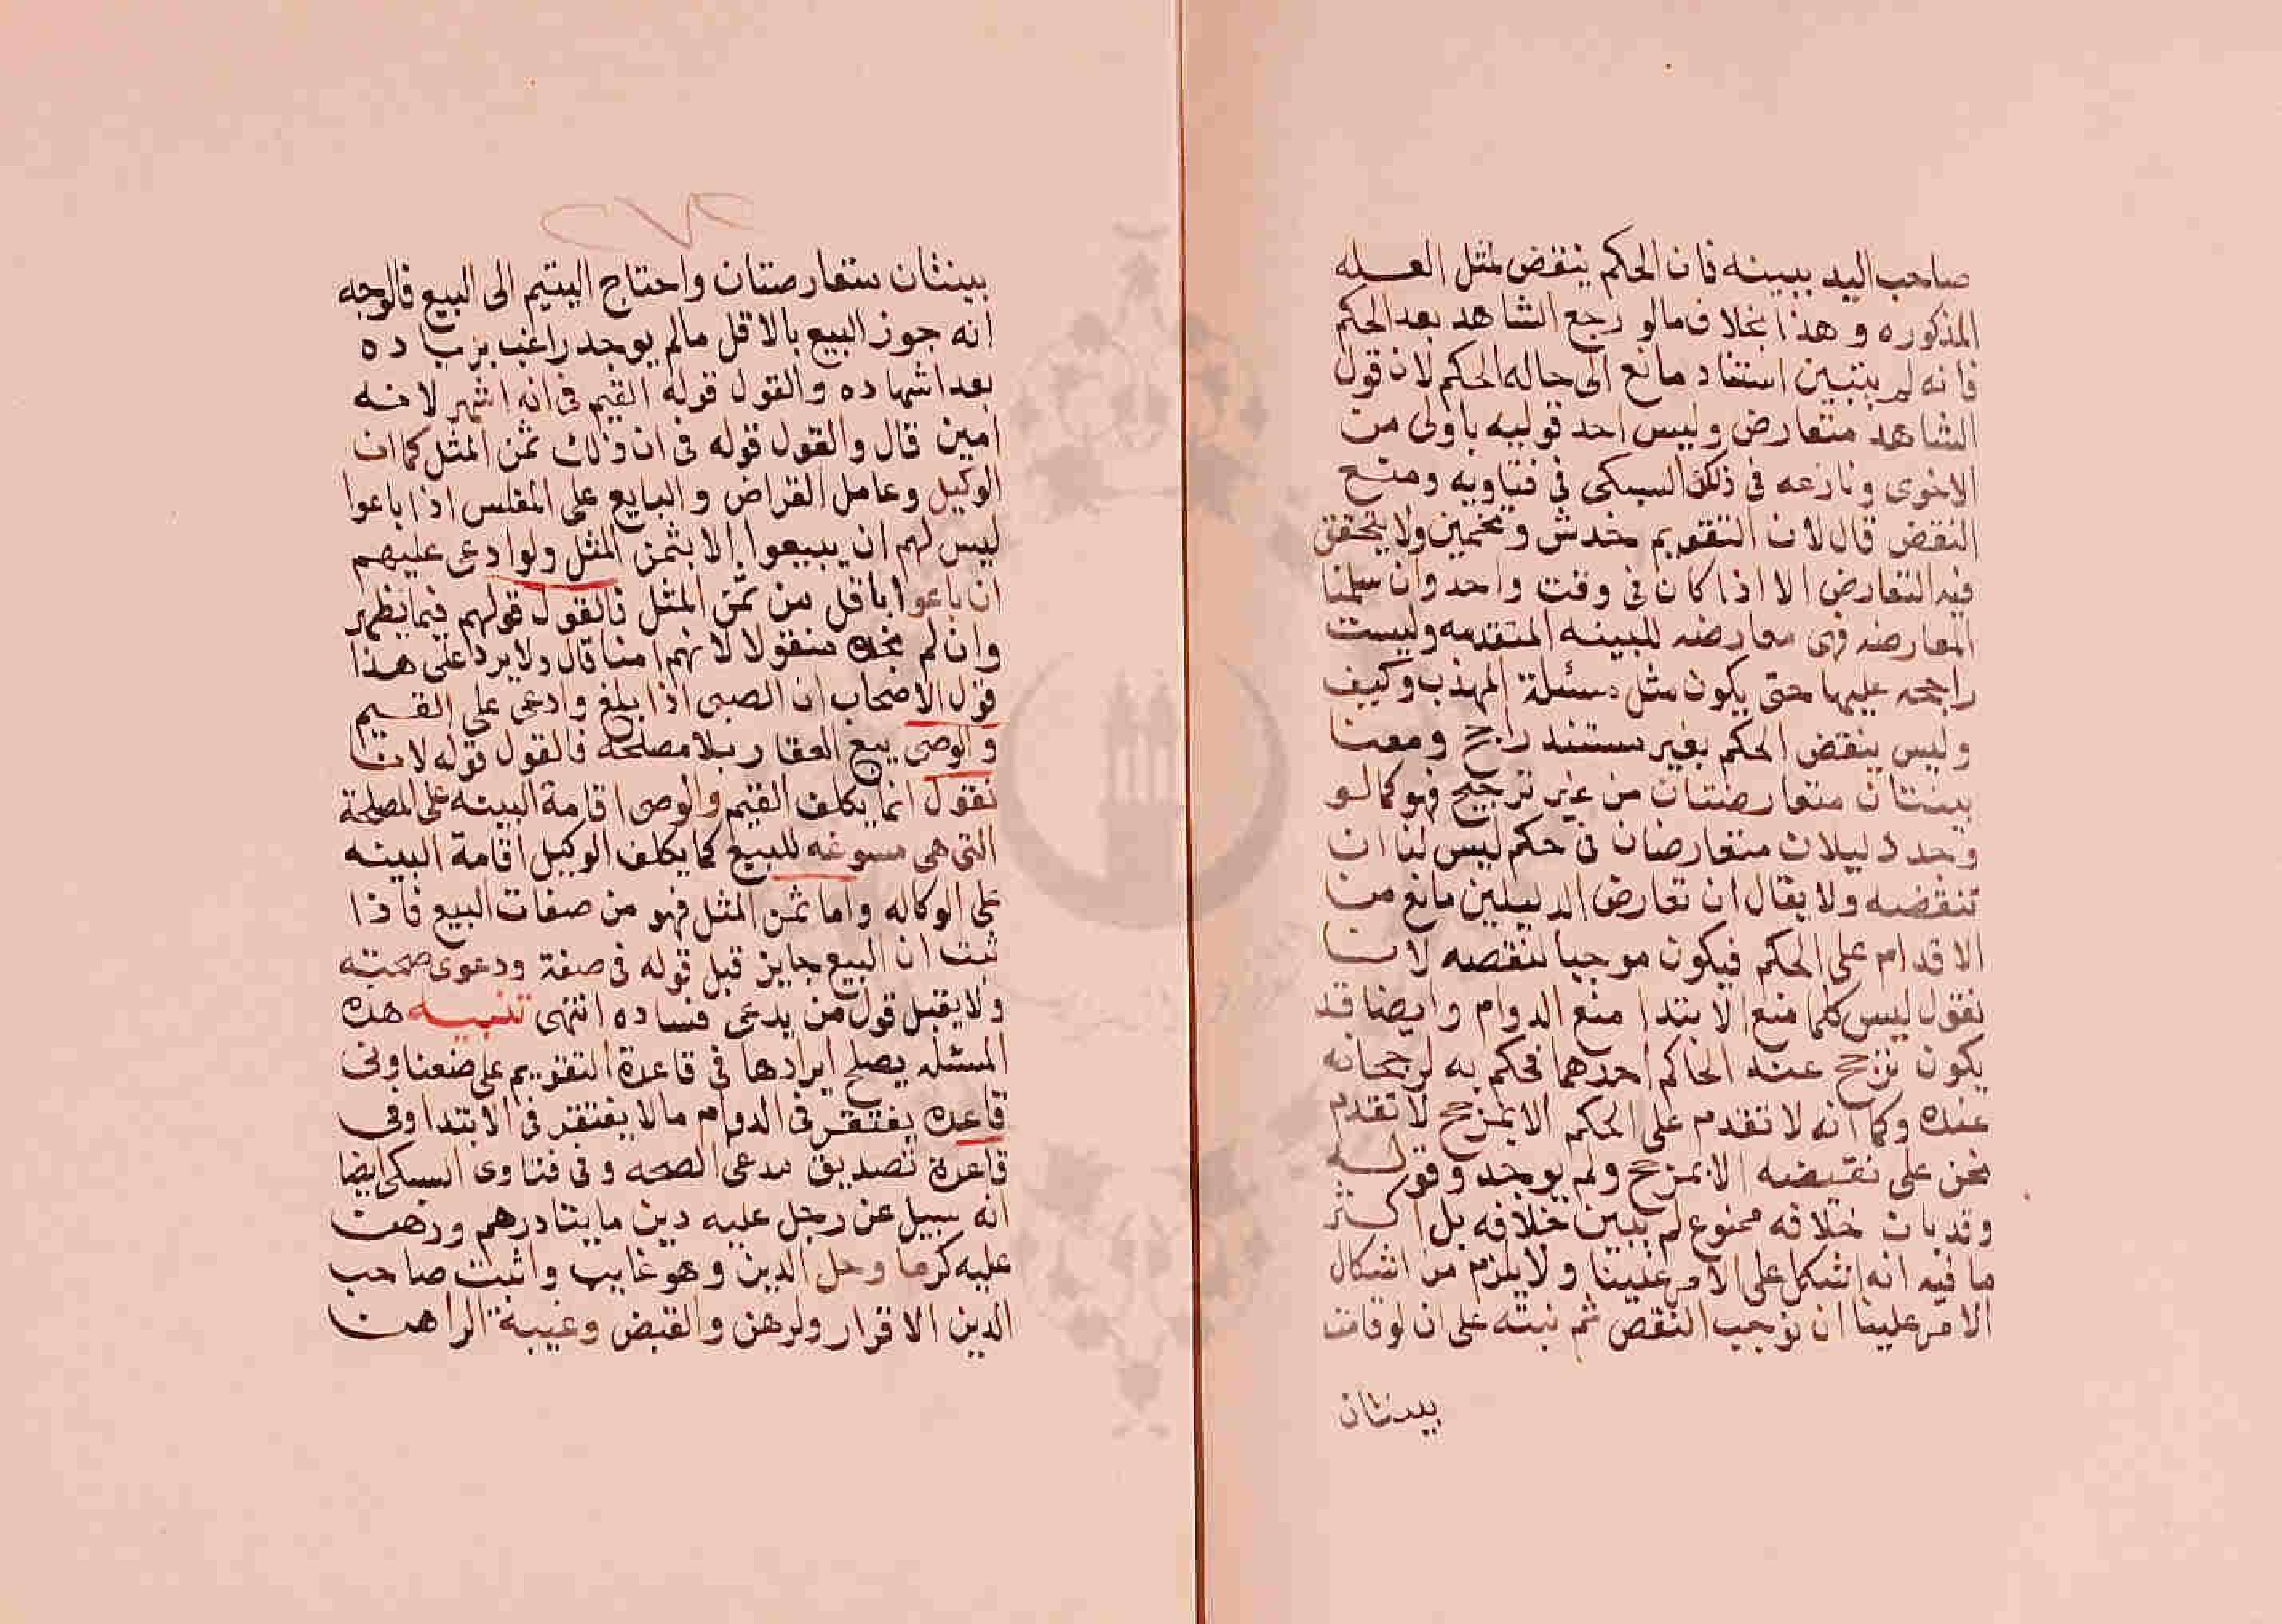 صاحب اليد ببينه فان الحكم ينقض لمثل العله
المذكوره وهذا بخلاف مالو رجع الشاهد بعد الحكم
فانه لم يتبين استناد مانع الى حاله الحكم لان قول
الشاهد متعارض وليس احد قوليه باولى من
الاخرى ونازعه فى ذلك السبكى فى فتاويه ومنع
النقض قال لان التقويم حدش وتخمين ولا يتحقق
فيه التعارض الا اذا كان فى وقت واحد وان سلمنا
المعارضه فهى معارضه للبينه المتقدمه وليست
راجحه عليها حتى يكون مثل مسئلة المهذب وكيف
وليس ينقض الحكم بغير مستند راجح ومعنا
بينتان متعارضتان من غير ترجيح فهو كما لو
وجد دليلان متعارضان فى حكم ليس لنا ان
تنقضه ولا يقال ان تعارض الدليلين مانع من
الاقدام على الحكم فيكون موجبا لنقضه لانا
نقول ليس كلما منع الابتدا منع الدوام وايضا قد
يكون ترجح عند الحاكم احدهما فحكم به لرجحانه
عنده وكما انه لا تقدم على الحكم الا بمرجح لا تقدم
نحن على نقيضه الا بمرجح ولم يوجد وقوله
وقد بان خلافه ممنوع لم يبين خلافه بل اكثر
ما فيه انه اشكل على الامر علينا ولا يلزم من اشكال
الامر علينا ان نوجب النقض ثم نبه على ان لو قامت
بينتان
بينتان متعارضتان واحتاج اليتيم الى البيع فالوجه
انه جوز البيع بالاقل مالم يوجد راغب بزياده
بعد اشهاده والقول قوله القيم فى انه اشهر لانه
امين قال والقول قوله فى ان ذلك ثمن المثل كما ان
الوكيل وعامل القراض والبايع على المفلس اذا باعوا
ليس لهم ان يبيعوا الا بثمن المثل ولو ادعى عليهم
ان باعوا باقل من ثمن المثل فالقول قولهم فيما يظهر
وان لم نجده منقولا لانهم امنا قال ولا يرد على هذا
قول الاصحاب ان الصبى اذا بلغ وادعى على القيم
والوصى بيع العقار بلا مصلحة فالقول قوله لانا
نقول انما يكلف القيم والوصى اقامة البينه على المصلحة
التى هى مسوغه للبيع كما يكلف الوكيل اقامة البينه
على الوكاله واما ثمن المثل فهو من صفات البيع فاذا
ثبت ان البيع جايز قبل قوله فى صفة ودعوى صحته
ولا يقبل قول من يدعى فساده انتهى تنبيه هذه
المسئله يصلح ايرادها فى قاعدة التقويم على ضعنا وفى
قاعده يغتفر فى الدوام مالا يغتفر فى الابتدا وفى
قاعدة تصديق مدعى الصحه وفى فتاوى السبكى ايضا
انه سيل عن رجل عليه دين مايتا درهم ورهن
عليه كرما وحل الدين وهو غايب واثبت صاحب
الدين الاقرار ولرهن والقبض وغيبة الراهن